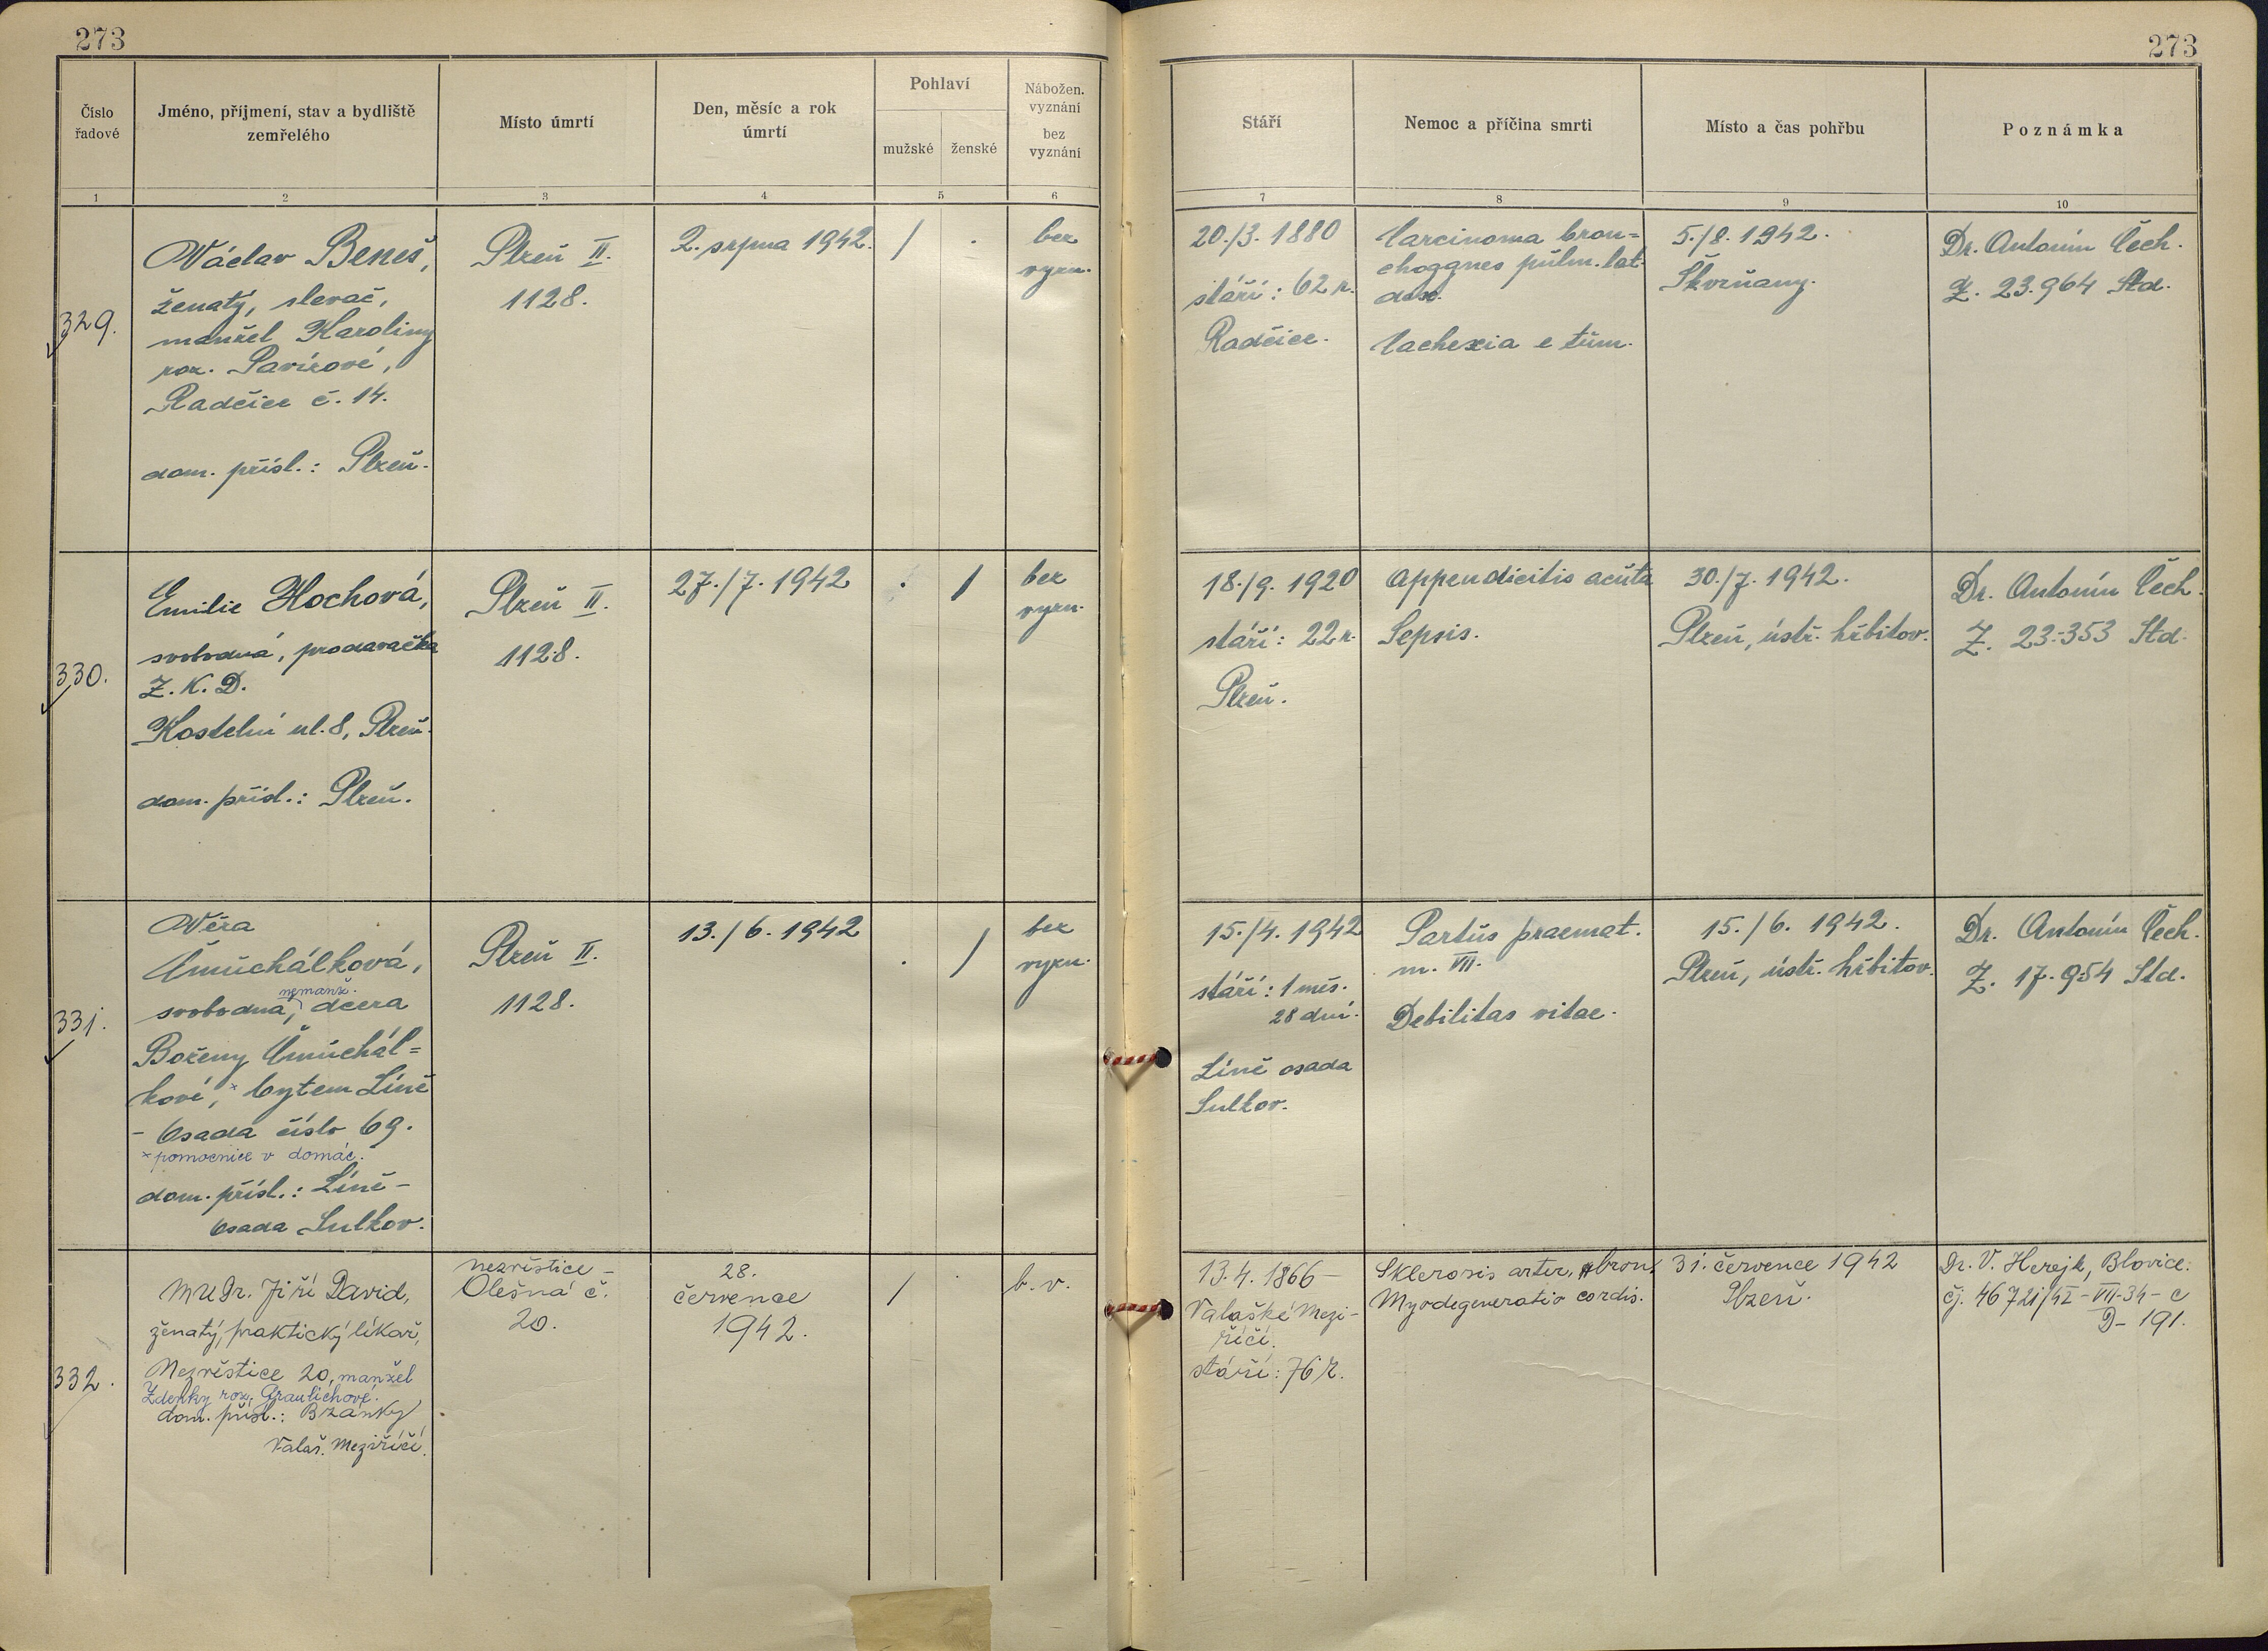 273
273
Číslo řadové
Jméno, příjmení, stav a bydliště zemřelého
Místo úmrtí
Den, měsíc a rok úmrtí
Pohlaví
mužské
ženské
Nábožen. vyznání
bez vyznání
Stáří
Nemoc a příčina smrti
Místo a čas pohřbu
Poznámka
1
2
3
4
5
6
7
8
9
10
329.
Václav Beneš,
ženatý, slevač,
manžel Karoliny
roz. Pavírové,
Radčice č. 14.
dom. přísl.: Plzeň.
Plzeň II.
1128.
2. srpna 1942.
/
.
bez
vyzn.
20./3. 1880
stáří: 62 r.
Radčice.
Carcinoma bron=
choggnes pulm. lat.
dex.
Cachexia e tum.
5./8. 1942.
Škvrňany.
Dr. Antonín Čech.
Z. 23.964 Std.
330.
Emilie Hochová,
svobodná, prodavačka
Z. K. D.
Kostelní ul. 8, Plzeň.
dom. přísl.: Plzeň.
Plzeň II.
1128.
27./7. 1942
.
/
bez
vyzn.
18./9. 1920
stáří: 22 r.
Plzeň.
Appendicitis acuta
Sepsis.
30./7. 1942.
Plzeň, ústř. hřbitov.
Dr. Antonín Čech.
Z. 23.353 Std.
331.
Věra
Čmuchálková,
nemanž.
svobodná, dcera
Boženy Čmuchál=
kové, × bytem Líně
- Osada číslo 69.
× pomocnice v domác.
dom. přísl.: Líně -
Osada Sulkov.
Plzeň II.
1128.
13./6. 1942
.
/
bez
vyzn.
15./4. 1942
stáří: 1 měs.
28 dní.
Líně osada
Sulkov.
Partus praemat.
m. VII.
Debilitas vitae.
15./6. 1942.
Plzeň, ústř. hřbitov.
Dr. Antonín Čech.
Z. 17.954 Std.
332.
MUDr. Jiří David,
ženatý, praktický lékař,
Nezvěstice 20, manžel
Zdenky roz. Graulichové.
dom. přísl.: Brzánky
Valaš. Meziříčí.
Nezvěstice -
Olešná č.
20.
28.
července
1942.
/
.
b. v.
13. 4. 1866 -
Valašké Mezi-
říčí.
stáří: 76 r.
Sklerosis arter. bron.
Myodegeneratio cordis.
31. července 1942
Plzeň.
Dr. V. Herejk, Blovice.
čj. 46721/42 - VII-34 - c
D - 191.